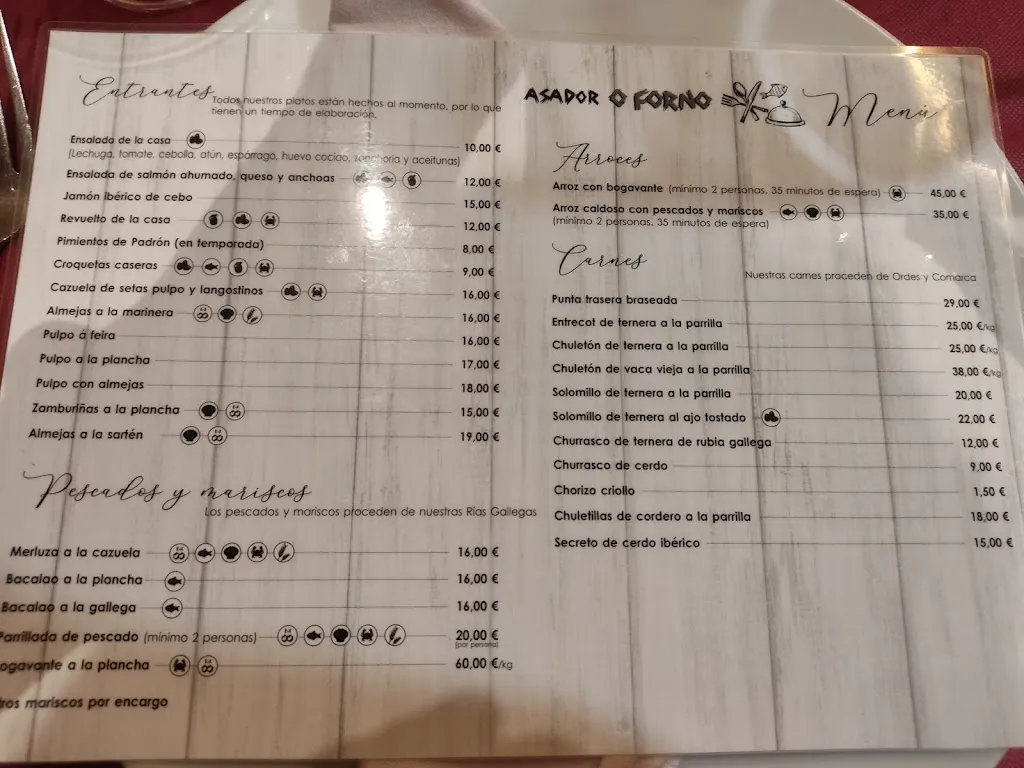 Entrantes
Todos nuestros platos están hechos al momento, por lo que
tienen un tiempo de elaboración.
Ensalada de la casa 10,00 €
(Lechuga, tomate, cebolla, atún, espárrago, huevo cocido, zanahoria y aceitunas)
Ensalada de salmón ahumado, queso y anchoas 12,00 €
Jamón ibérico de cebo 15,00 €
Revuelto de la casa 12,00 €
Pimientos de Padrón (en temporada) 8,00 €
Croquetas caseras 9,00 €
Cazuela de setas pulpo y langostinos 16,00 €
Almejas a la marinera 16,00 €
Pulpo á feira 16,00 €
Pulpo a la plancha 17,00 €
Pulpo con almejas 18,00 €
Zamburiñas a la plancha 15,00 €
Almejas a la sartén 19,00 €
Pescados y mariscos
Los pescados y mariscos proceden de nuestras Rías Gallegas
Merluza a la cazuela 16,00 €
Bacalao a la plancha 16,00 €
Bacalao a la gallega 16,00 €
Parrillada de pescado (mínimo 2 personas) 20,00 €
(por persona)
ogavante a la plancha 60,00 €/kg
ros mariscos por encargo
ASADOR O FORNO Menú
Arroces
Arroz con bogavante (mínimo 2 personas. 35 minutos de espera) 45,00 €
Arroz caldoso con pescados y mariscos 35,00 €
(mínimo 2 personas. 35 minutos de espera)
Carnes
Nuestras carnes proceden de Ordes y Comarca
Punta trasera braseada 29,00 €
Entrecot de ternera a la parrilla 25,00 €/kg
Chuletón de ternera a la parrilla 25,00 €/kg
Chuletón de vaca vieja a la parrilla 38,00 €/kg
Solomillo de ternera a la parrilla 20,00 €
Solomillo de ternera al ajo tostado 22,00 €
Churrasco de ternera de rubia gallega 12,00 €
Churrasco de cerdo 9,00 €
Chorizo criollo 1,50 €
Chuletillas de cordero a la parrilla 18,00 €
Secreto de cerdo ibérico 15,00 €